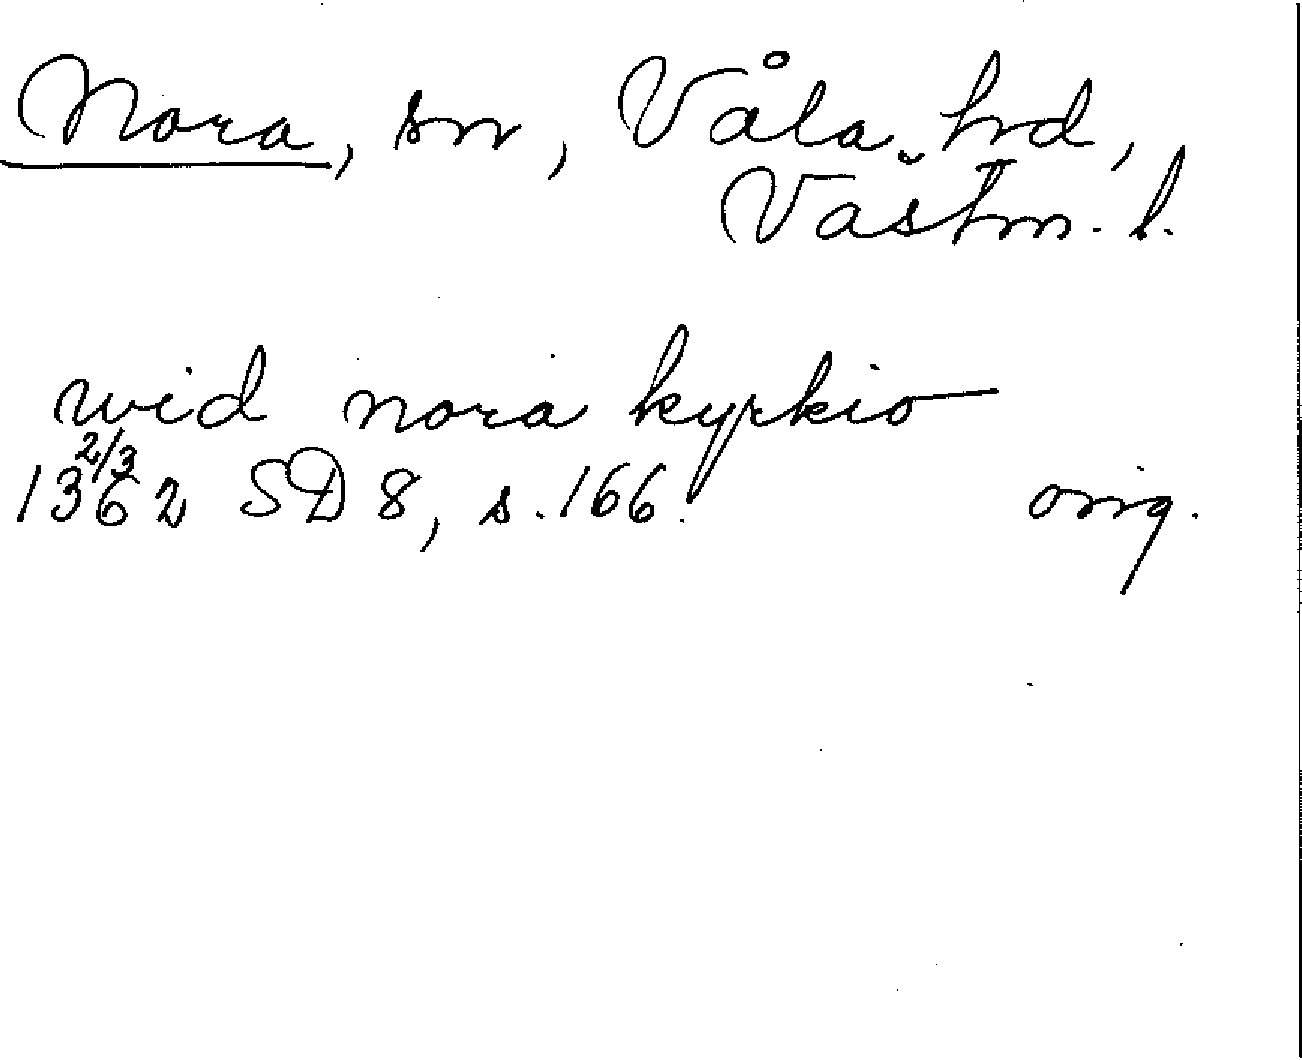 Nora, sn, Våla hd,
Västm. l.
wid nora kyrkio
2/3
1362 SD 8, s. 166. orig.